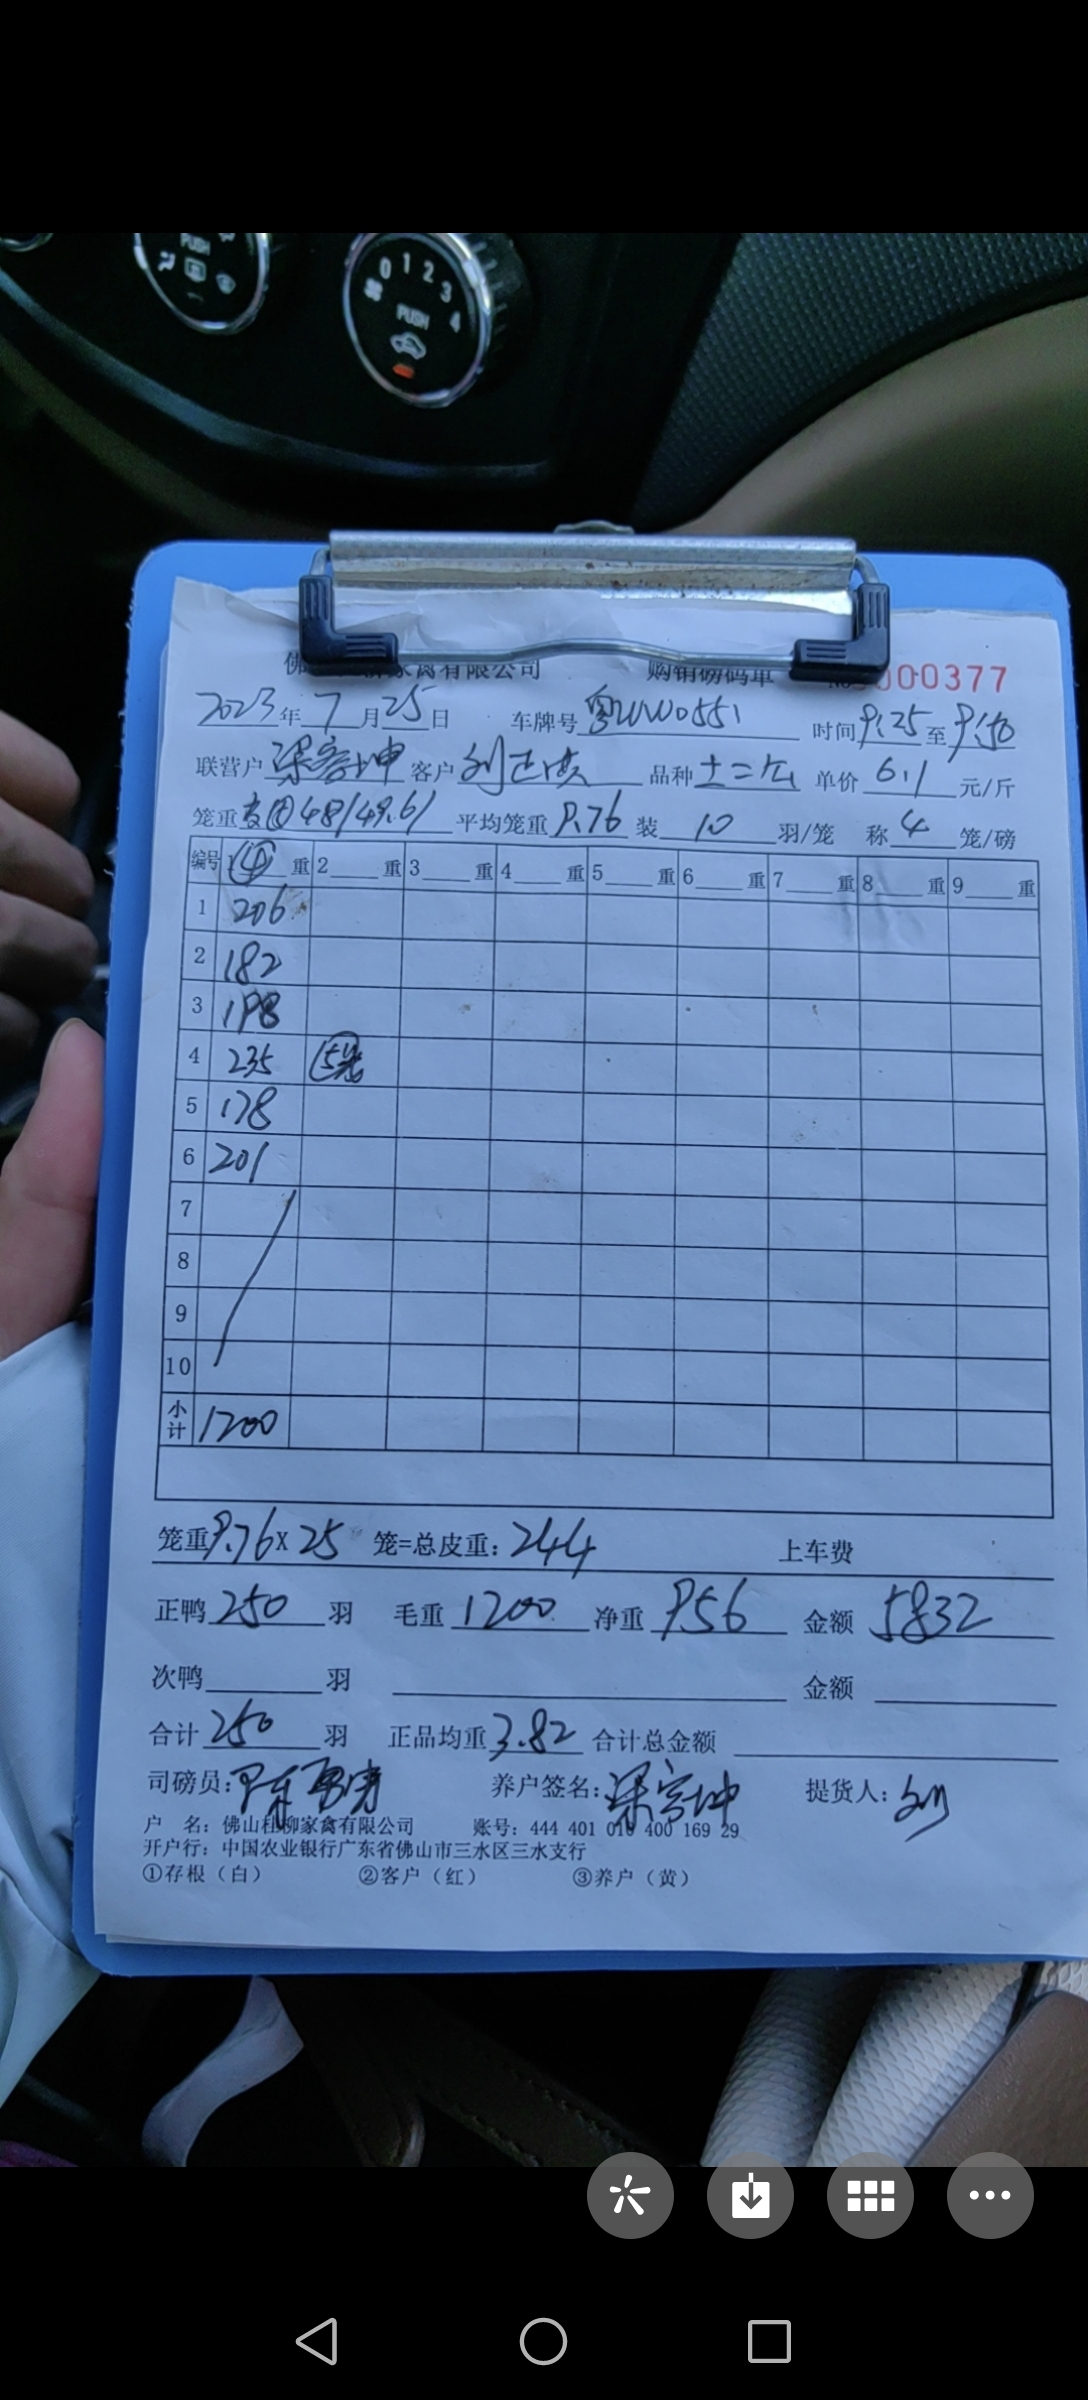 PUSH
0 1 2 3 4
PUSH
佛 家禽有限公司 购销磅码单 No 000377
2023年7月25日 车牌号 粤 W0551 时间9:25至9:50
联营户 梁容坤 客户 刘 品种 单价6.1元/斤
笼重 48/49.6/ 平均笼重9.76 装10羽/笼 称4笼/磅
编号 1④重 2 重 3 重 4 重 5 重 6 重 7 重 8 重 9 重
1 206
2 182
3 198
4 235 5笼
5 178
6 201
7
8
9
10
小计 1200
笼重9.76x25 笼=总皮重:244 上车费
正鸭250羽 毛重1200 净重956 金额5832
次鸭 羽 金额
合计250羽 正品均重3.82 合计总金额
司磅员: 养户签名:梁容坤 提货人:刘
户 名:佛山桂柳家禽有限公司 账号:444 401 010 400 169 29
开户行:中国农业银行广东省佛山市三水区三水支行
①存根(白) ②客户(红) ③养户(黄)